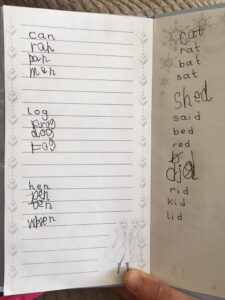 can
ran
pan
man
log
frog
dog
fog
hen
pen
ten
when
cat
rat
bat
sat
shed
said
bed
red
did
rid
kid
lid